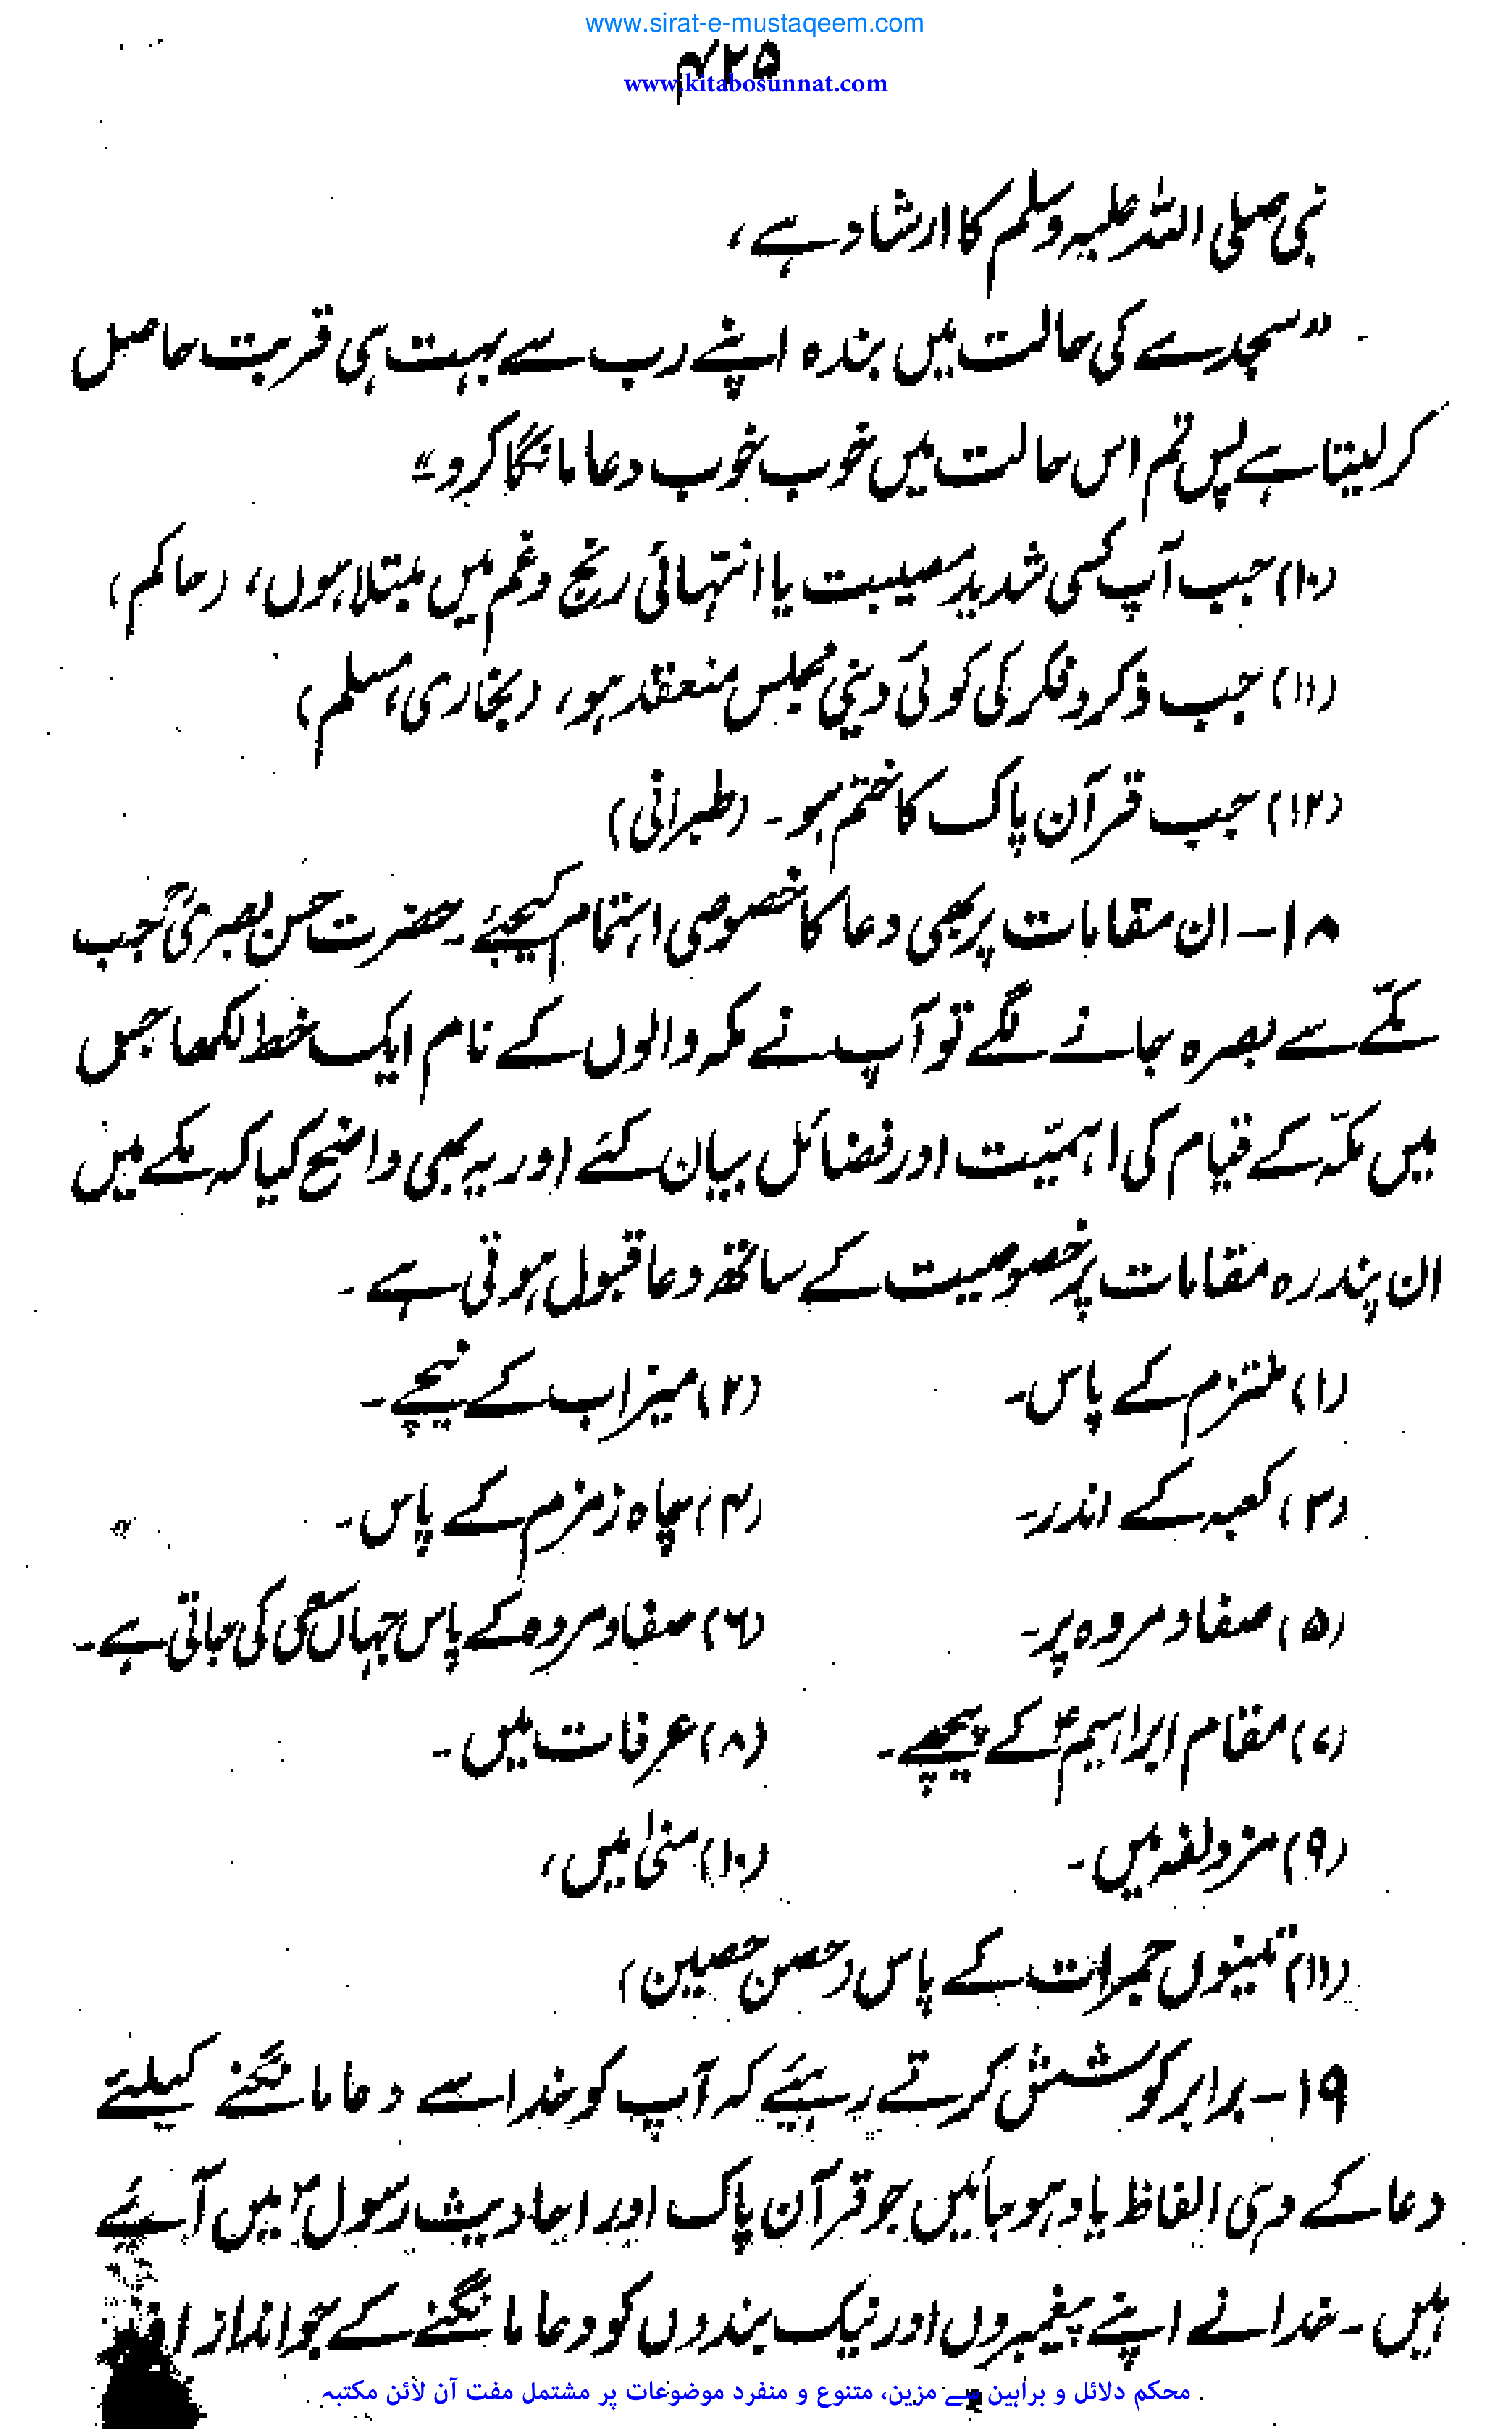 www.sirat-e-mustaqeem.com
۴۲۵
www.kitabosunnat.com
نبی صلی اللہ علیہ وسلم کا ارشاد ہے،
”سجدے کی حالت میں بندہ اپنے رب سے بہت ہی قربت حاصل
کر لیتا ہے پس تم اس حالت میں خوب خوب دعا مانگا کرو۔“
(۱۰) جب آپ کسی شدید مصیبت یا انتہائی رنج و غم میں مبتلا ہوں، (حاکم)
(۱۱) جب ذکر و فکر کی کوئی دینی مجلس منعقد ہو، (بخاری، مسلم)
(۱۲) جب قرآن پاک کا ختم ہو۔ (طبرانی)
۱۸۔ ان مقامات پر بھی دعا کا خصوصی اہتمام کیجئے۔ حضرت حسن بصریؒ جب
مکّے سے بصرہ جانے لگے تو آپ نے مکہ والوں کے نام ایک خط لکھا جس
میں مکّہ کے قیام کی اہمیّت اور فضائل بیان کئے اور یہ بھی واضح کیا کہ مکے میں
ان پندرہ مقامات پر خصوصیت کے ساتھ دعا قبول ہوتی ہے۔
(۱) ملتزم کے پاس۔ (۲) میزاب کے نیچے۔
(۳) کعبہ کے اندر۔ (۴) چاہ زمزم کے پاس۔
(۵) صفا و مروہ پر۔ (۶) صفا و مروہ کے پاس جہاں سعی کی جاتی ہے۔
(۷) مقام ابراہیمؑ کے پیچھے۔ (۸) عرفات میں۔
(۹) مزدلفہ میں۔ (۱۰) منیٰ میں،
(۱۱) تینوں جمرات کے پاس (حصن حصین)
۱۹۔ برابر کوشش کرتے رہیئے کہ آپ کو خدا سے دعا مانگنے کیلئے
دعا کے وہی الفاظ یاد ہو جائیں جو قرآن پاک اور احادیث رسولؐ میں آئے
ہیں۔ خدا نے اپنے پیغمبروں اور نیک بندوں کو دعا مانگنے کے جو انداز اور
محکم دلائل و براہین سے مزین، متنوع و منفرد موضوعات پر مشتمل مفت آن لائن مکتبہ